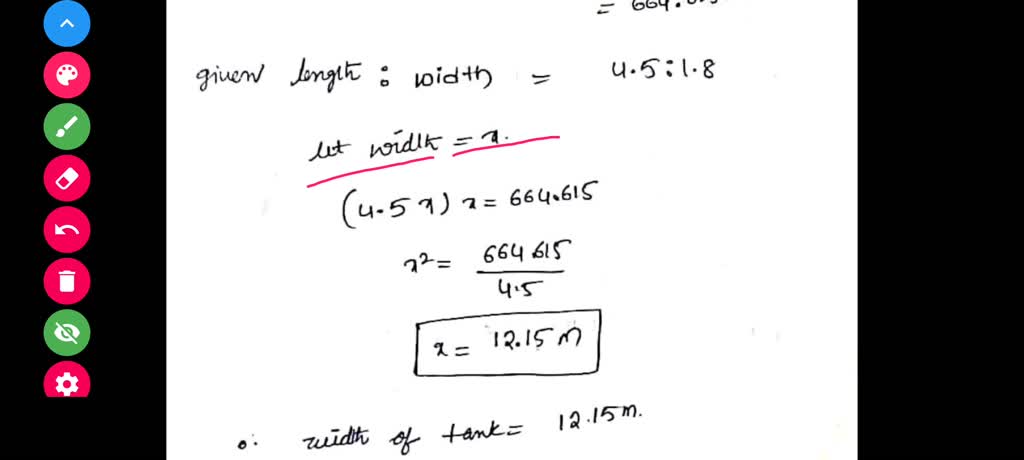 = 664.615
given length : width = 4.5:1.8
let width = x.
(4.5 x) x = 664.615
x² = 664.615 / 4.5
x = 12.15 m
∴ width of tank = 12.15 m.